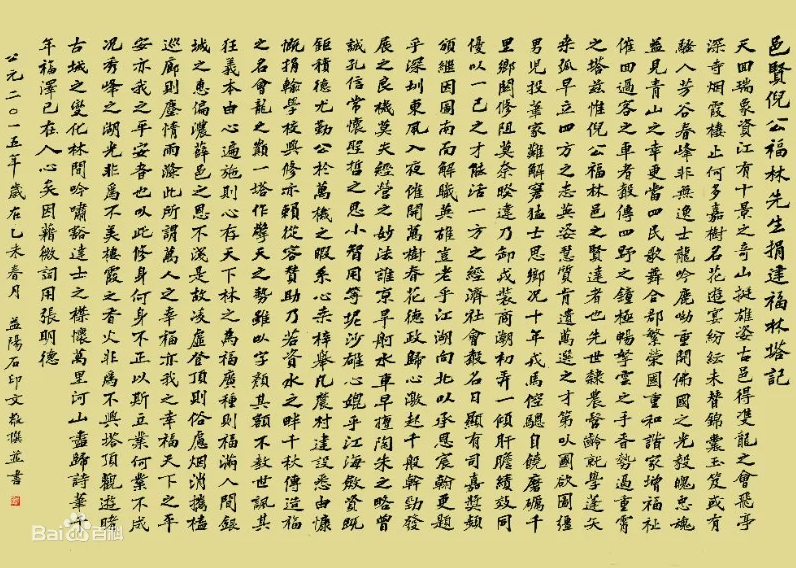 邑賢倪公福林先生捐建福林塔記
天回瑞象資江有十景之奇山挺雄姿古邑得雙龍之會飛亭
深寺烟霞棲止何多嘉樹名花遊宴紛紜未替錦囊玉笈或有
騷人芳谷春峰非無逸士龍吟鹿呦重開佛國之光毅魄忠魂
益見青山之幸更當四民歌舞合郡繁榮國重和諧家增福祉
催回過客之車者毅傳四野之鐘極暢拏雲之手音勢過重霄
之塔茲惟倪公福林邑之賢達者也先世隸農髫齡就學蓬矢
桑弧早立四方之志英姿慧質肯遺萬選之才第以國欲固疆
男兒投筆家難解窘猛士思鄉況十年戎馬倥傯自饒磨礪千
里鄉關修阻莫奈暌違乃卸戎裝商潮初弄一傾肝膽績效同
優以一己之才能活一方之經濟社會名日顯有司嘉獎頻
頒繼因風尚而解職英雄豈老乎江湖向北以承恩宸翰更題
乎深圳東風入夜催開萬樹春花德政歸心激起千般幹勁發
展之良機莫失經營之妙法誰京早射水車早擅陶朱之略曾
誠孔信常懷聖哲之思小智用等坭沙雄心媲乎江海斂資既
鉅積德尤勤公於萬機之暇系心桑梓舉凡農村建設悉由慷
慨捐輸學校興修亦賴從容贊助乃若資水之畔千秋傳造福
之名會龍之顛一塔作擎天之勢雖以字顏其額不教世諷其
狂義本由心遍施則心存天下林之為福廣種則福滿人間銀
城之惠偏濃薛邑之思不淺是故凌虛登頂則俗慮烟消攜榼
巡廊則塵情雨滌此所謂萬人之幸福亦我之幸福天下之平
安亦我之平安者也以此修身何身不正以斯立業何業不成
況秀峰之湖光非為不美棲霞之香火非為不興塔頂觀遊睹
古城之變化林間吟嘯豁達士之襟懷萬里河山盡歸詩華千
年福澤已在人心矣因藉微詞用張明德
公元二〇一五年歲在乙未春月 益陽石印文敬撰並書
Bai百科